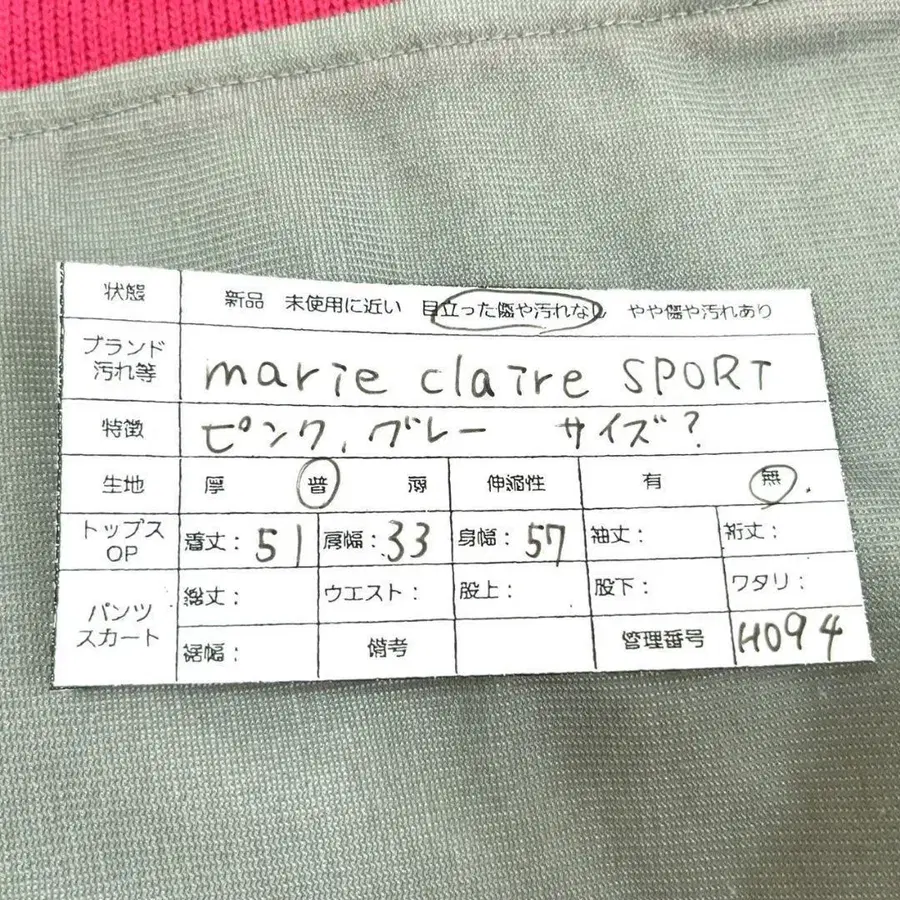 状態 新品 未使用に近い 目立った傷や汚れなし やや傷や汚れあり
ブランド
汚れ等 marie claire SPORT
特徴 ピンク、グレー サイズ?
生地 厚 普 薄 伸縮性 有 無
トップス
OP 着丈: 51 肩幅: 33 身幅: 57 袖丈: 裄丈:
パンツ
スカート 総丈: ウエスト: 股上: 股下: ワタリ:
裾幅: 備考 管理番号 H094